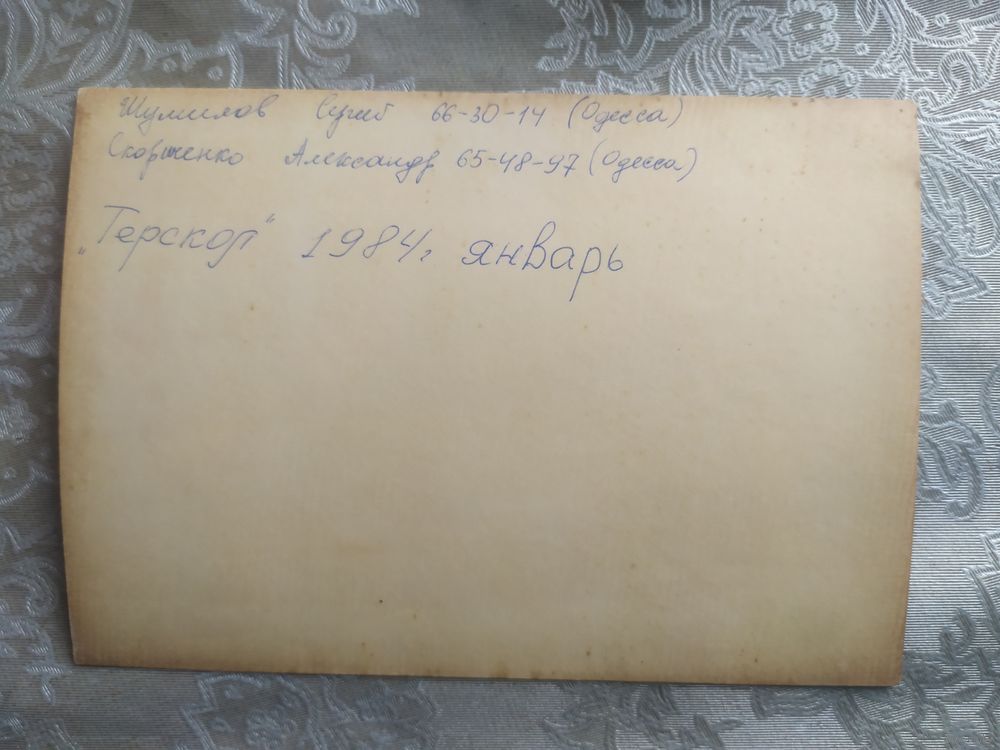 Шумилов Сергей 66-30-14 (Одесса)
Александр 65-48-97 (Одесса)
„Терскол" 1984г. январь